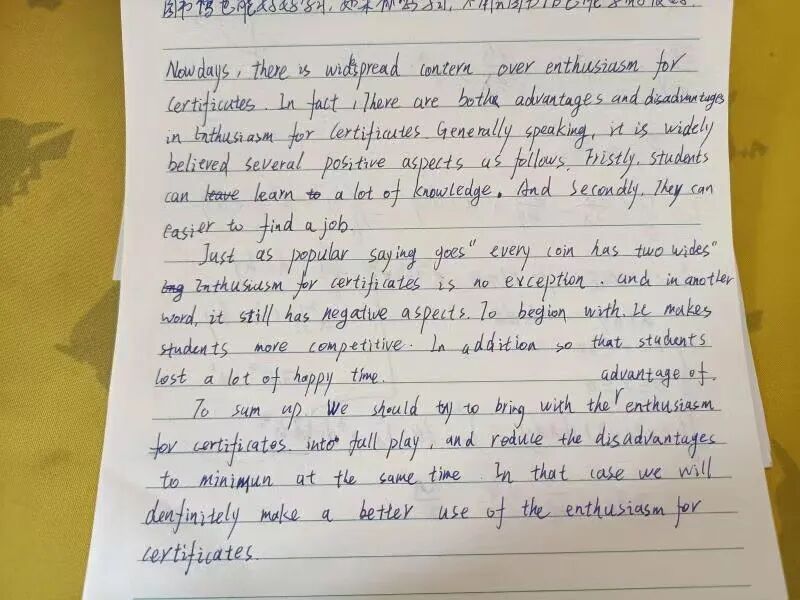 Nowdays, there is widespread contern over enthusiasm for
certificates. In fact, There are both advantages and disadvantages
in Enthusiasm for certificates Generally speaking, it is widely
believed several positive aspects as follows. Fristly. students
can learn a lot of knowledge. And secondly. They can
easier to find a job.
Just as popular saying goes" every coin has two wides"
Inthusiusm for certificates is no exception. and in another
word, it still has negative aspects. To begion with. It makes
students more competitive. In addition so that students
lost a lot of happy time. advantage of.
To sum up. We should try to bring with the enthusiasm
for certificates. into full play, and reduce the disadvantages
to minimun at the same time. In that case we will
denfinitely make a better use of the enthusiasm for
certificates.